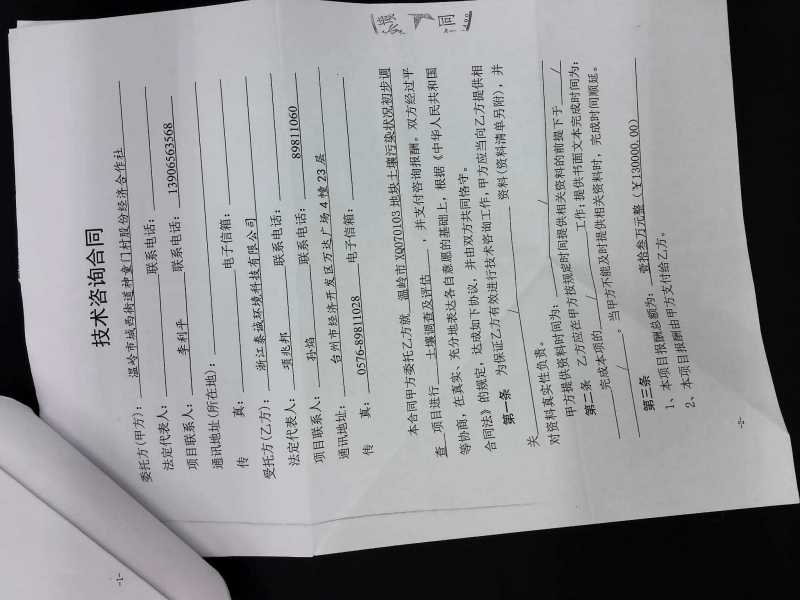 技术咨询合同
委托方(甲方)： 温岭市城西街道神童门村股份经济合作社
法定代表人： 联系电话：
项目联系人： 李利平 联系电话： 13906563568
通讯地址(所在地)：
传 真： 电子信箱：
受托方(乙方)： 浙江泰诚环境科技有限公司
法定代表人： 项兆邦 联系电话：
项目联系人： 孙焰 联系电话： 89811060
通讯地址： 台州市经济开发区万达广场 4 幢 23 层
传 真： 0576-89811028 电子信箱：
本合同甲方委托乙方就 温岭市 XQ070103 地块土壤污染状况初步调
查 项目进行 土壤调查及评估 ，并支付咨询报酬。双方经过平
等协商，在真实、充分地表达各自意愿的基础上，根据《中华人民共和国
合同法》的规定，达成如下协议，并由双方共同恪守。
第一条 为保证乙方有效进行技术咨询工作，甲方应当向乙方提供相
关 / 资料(资料清单另附)，并
对资料真实性负责。
甲方提供资料时间为： /
第二条 乙方应在甲方按规定时间提供相关资料的前提下于 /
完成本项的 / 工作;提供书面文本完成时间为:
/ 。当甲方不能及时提供相关资料时，完成时间顺延。
第三条
1、本项目报酬总额为： 壹拾叁万元整（￥130000.00）
2、本项目报酬由甲方支付给乙方。
-2-
-1-